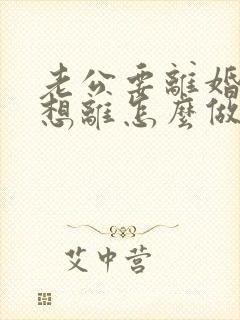 老公要離婚
想離怎麼做
艾中营